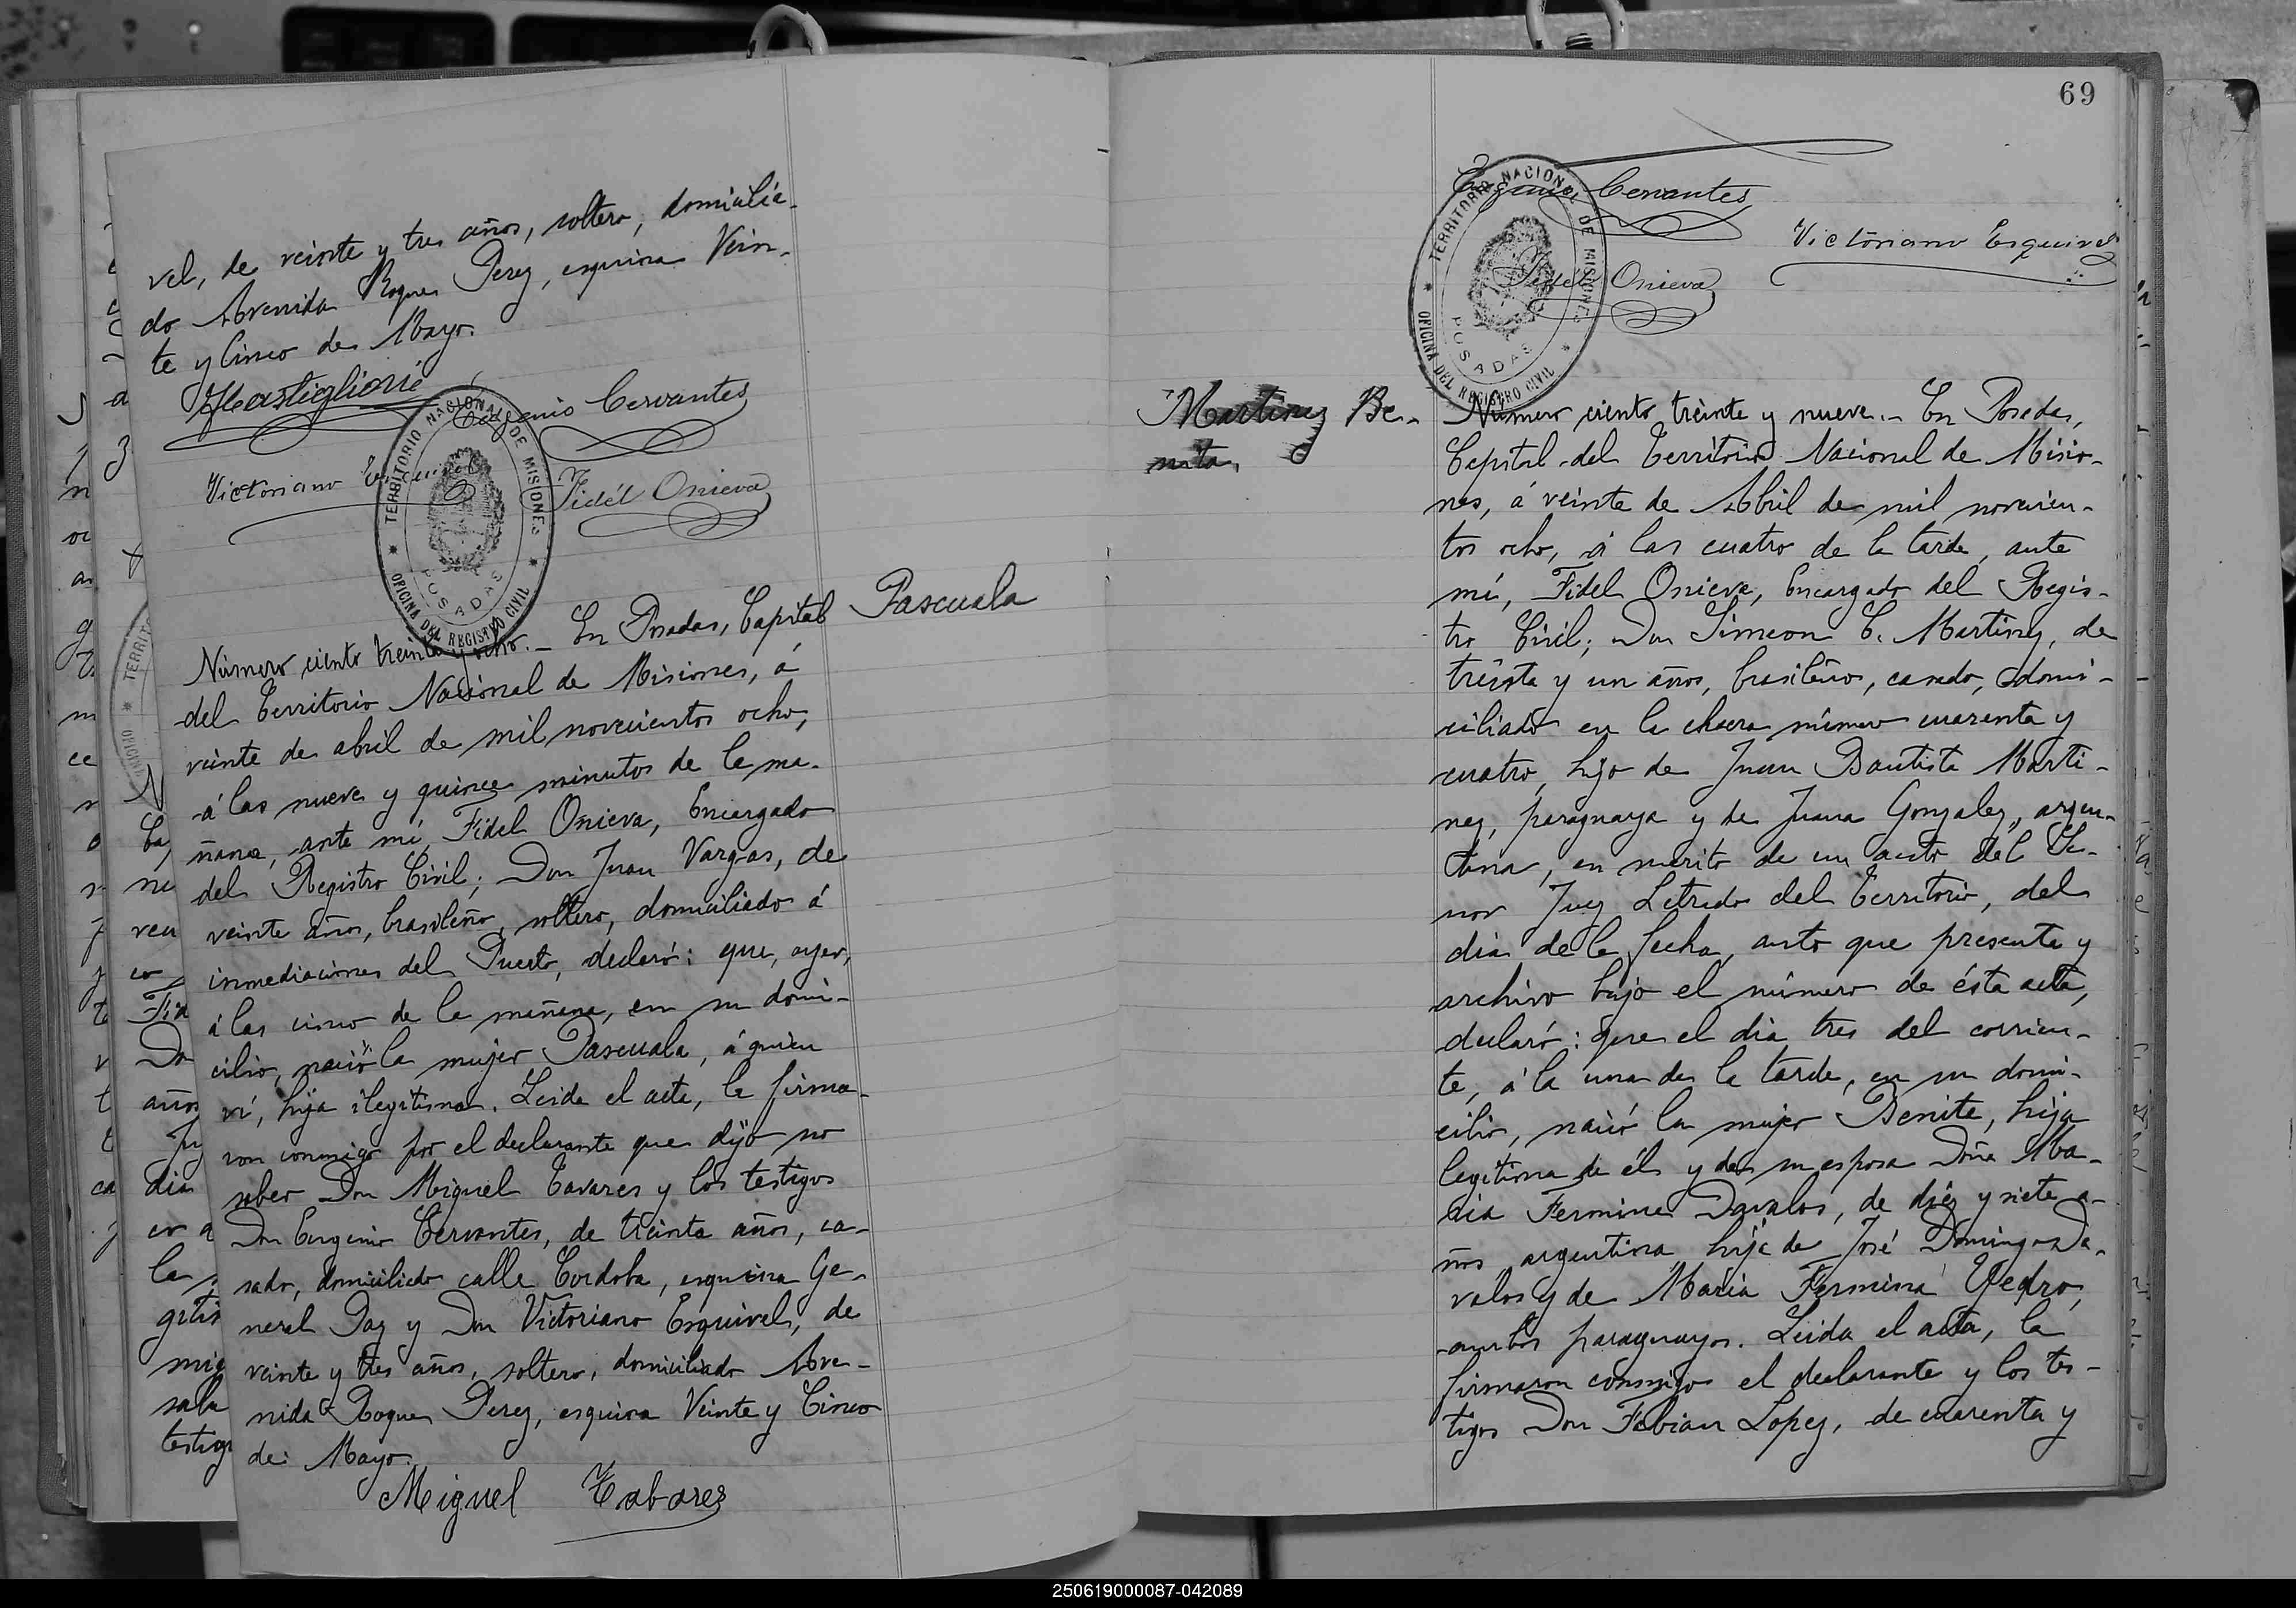 vel, de veinte y tres años, soltero, domicilia-
do Avenida Roque Perez, esquina Vein-
te y Cinco de Mayo.
Eugenio Cervantes
Victoriano Esquivel
Fidél Onieva
TERRITORIO NACIONAL DE MISIONES
POSADAS
OFICINA DEL REGISTRO CIVIL
Pascuala
Número ciento treinta y ocho.- En Posadas, Capital
del Territorio Nacional de Misiones, á
veinte de abril de mil novecientos ocho,
á las nueve y quince minutos de la ma-
ñana, ante mí, Fidel Onieva, Encargado
del Registro Civil; Don Juan Vargas, de
veinte años, brasileño, soltero, domiciliado á
inmediaciones del Puerto, declaró: que, ayer,
á las cinco de la mañana, en su domi-
cilio, nació la mujer Pascuala, á quien
ví, hija ilegitima. Leida el acta, la firma-
ron conmigo por el declarante que dijo no
saber Don Miguel Tavares y los testigos
Don Eugenio Cervantes, de treinta años, ca-
sado, domiciliado calle Cordoba, esquina Ge-
neral Paz y Don Victoriano Esquivel, de
veinte y tres años, soltero, domiciliado Ave-
nida Roque Perez, esquina Veinte y Cinco
de Mayo.
Miguel Tabares
69
Eugenio Cervantes
Victoriano Esquivel
Fidél Onieva
TERRITORIO NACIONAL DE MISIONES
POSADAS
OFICINA DEL REGISTRO CIVIL
Martinez Be-
nita,
Número ciento treinta y nueve.- En Posadas,
Capital del Territorio Nacional de Misio-
nes, á veinte de Abril de mil novecien-
tos ocho, á las cuatro de la tarde, ante
mí, Fidel Onieva, Encargado del Regis-
tro Civil; Don Simeon C. Martinez, de
treinta y un años, brasileño, casado, domi-
ciliado en la chacra número cuarenta y
cuatro, hijo de Juan Bautista Marti-
nez, paraguaya y de Juana Gonzalez, argen-
tina, en merito de un auto del Se-
ñor Juez Letrado del Territorio, del
dia de la fecha, auto que presenta y
archivo bajo el número de ésta acta,
declaró: que el dia tres del corrien-
te, á la una de la tarde, en su domi-
cilio, nació la mujer Benita, hija
legitima de él y de su esposa Doña Ma-
ria Fermina Davalos, de diez y siete a-
ños argentina hija de José Domingo Da-
valos y de Maria Fermina Yedro,
ambos paraguayos. Leida el acta, la
firmaron conmigo el declarante y los tes-
tigos Don Fabian Lopez, de cuarenta y
250619000087-042089